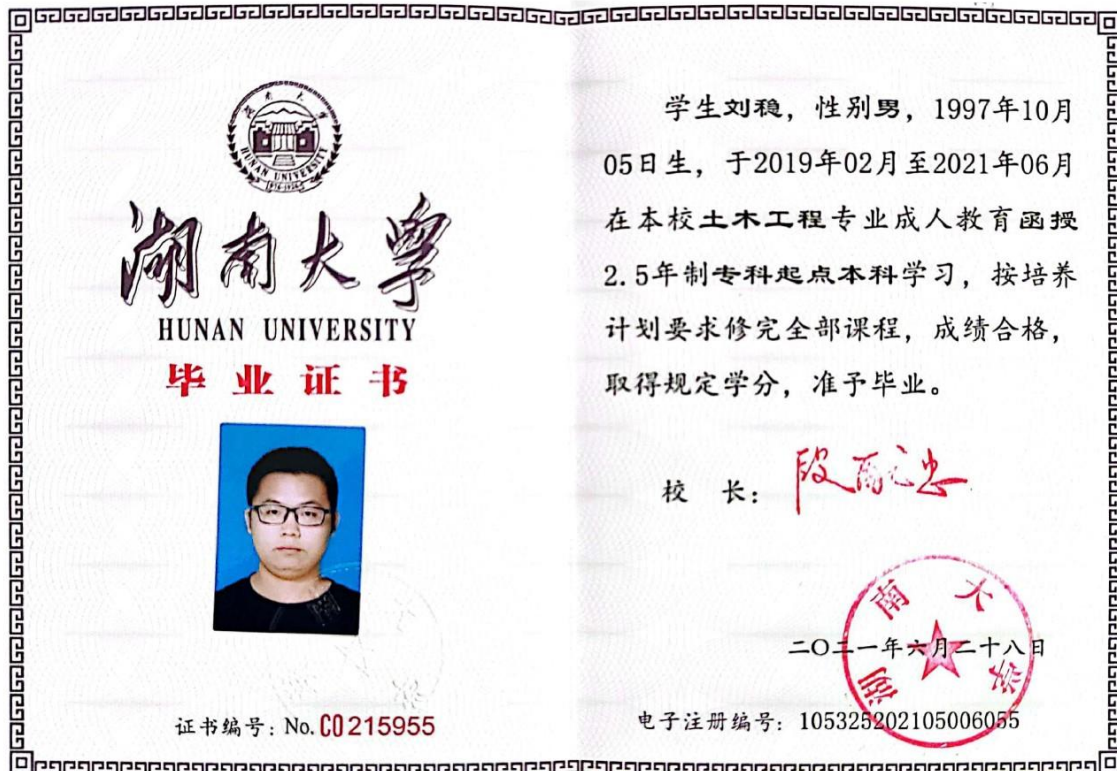 湖南大学
HUNAN UNIVERSITY
湖南大学
HUNAN UNIVERSITY
毕业证书
证书编号：No. C0215955
学生刘稳，性别男，1997年10月
05日生，于2019年02月至2021年06月
在本校土木工程专业成人教育函授
2.5年制专科起点本科学习，按培养
计划要求修完全部课程，成绩合格，
取得规定学分，准予毕业。
校 长：
二〇二一年六月二十八日
湖南大学
电子注册编号：105325202105006055